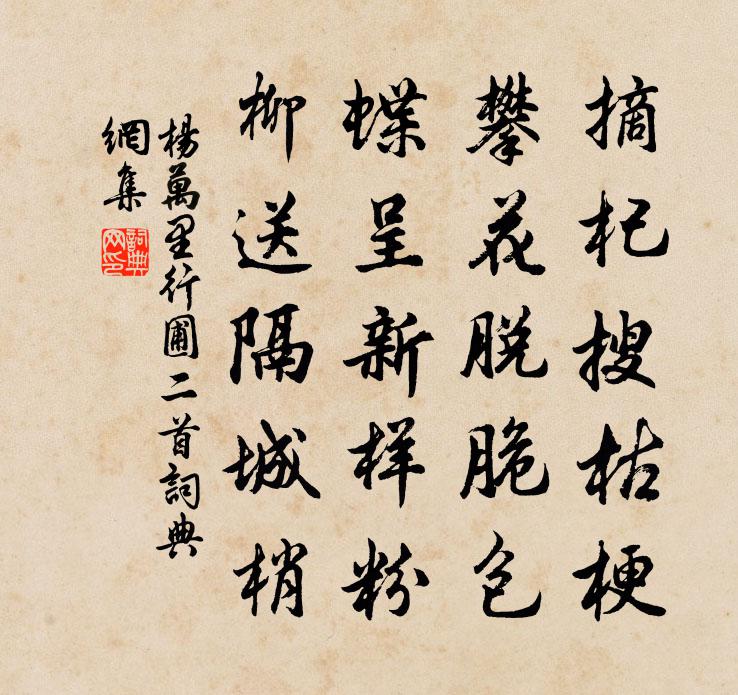 摘杞搜枯梗
攀花脱脆包
蝶呈新样粉
柳送隔城梢
楊萬里行圃二首詞典
網集
詞典
网印